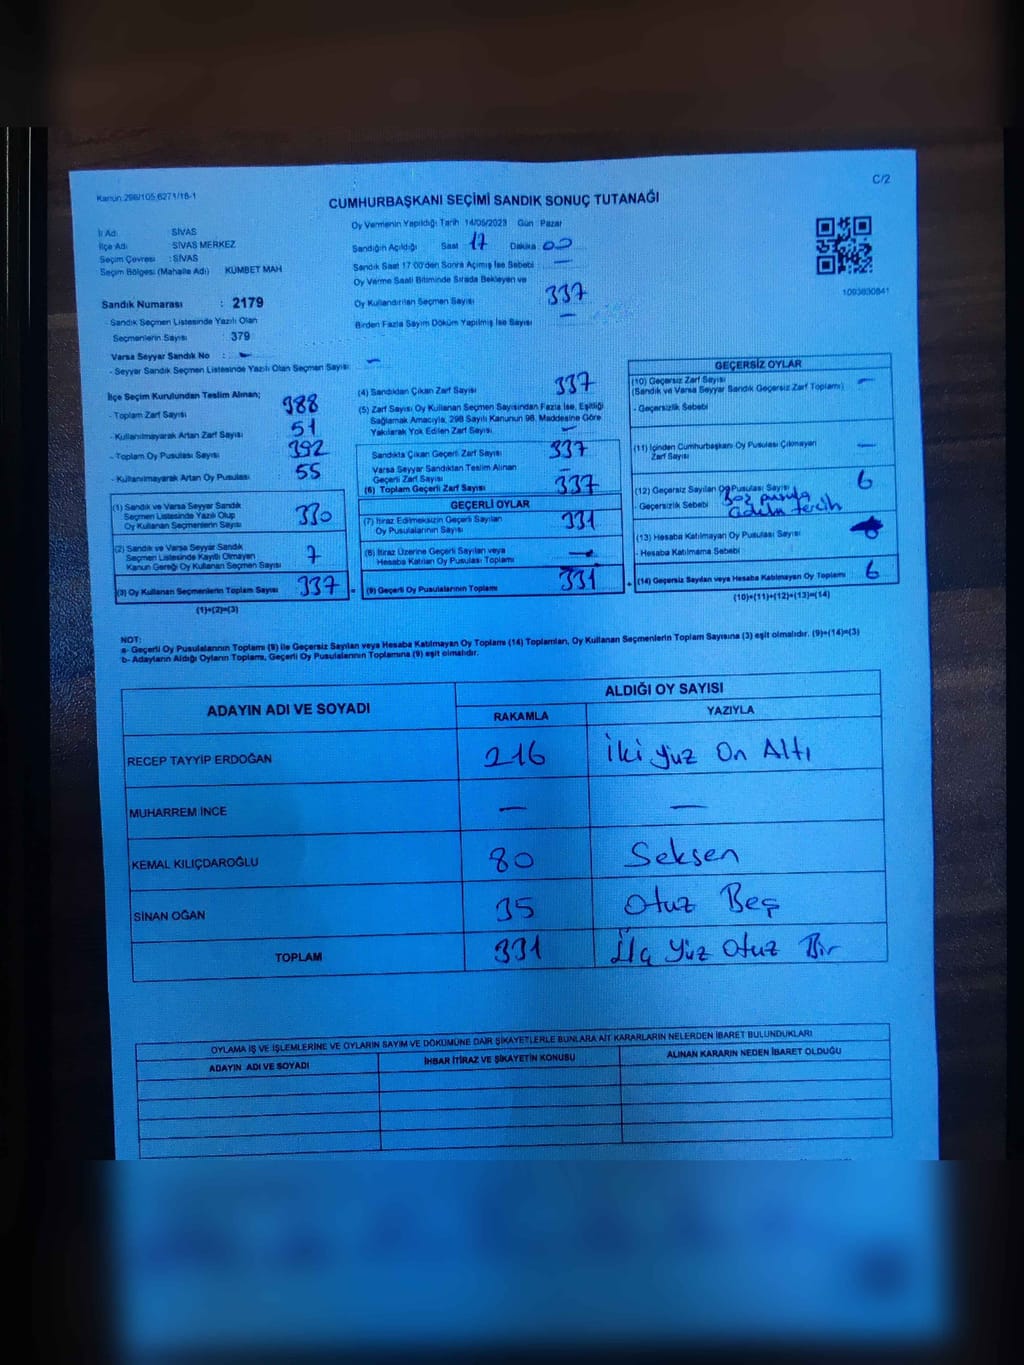 C/2
Kanun:298/105,6271/18-1
CUMHURBAŞKANI SEÇİMİ SANDIK SONUÇ TUTANAĞI
İl Adı : SİVAS
İlçe Adı : SİVAS MERKEZ
Seçim Çevresi : SİVAS
Seçim Bölgesi (Mahalle Adı) KÜMBET MAH
Oy Vermenin Yapıldığı Tarih 14/05/2023 Gün Pazar
Sandığın Açıldığı Saat 17 Dakika 00
Sandık Saat 17:00'den Sonra Açılmış İse Sebebi : —
Oy Verme Saati Bitiminde Sırada Bekleyen ve
Oy Kullandırılan Seçmen Sayısı 337
Birden Fazla Sayım Döküm Yapılmış İse Sayısı —
1093830841
Sandık Numarası : 2179
- Sandık Seçmen Listesinde Yazılı Olan
Seçmenlerin Sayısı : 379
Varsa Seyyar Sandık No : —
- Seyyar Sandık Seçmen Listesinde Yazılı Olan Seçmen Sayısı: —
İlçe Seçim Kurulundan Teslim Alınan;
- Toplam Zarf Sayısı : 388
- Kullanılmayarak Artan Zarf Sayısı : 51
- Toplam Oy Pusulası Sayısı : 392
- Kullanılmayarak Artan Oy Pusulası : 55
(1) Sandık ve Varsa Seyyar Sandık
Seçmen Listesinde Yazılı Olup
Oy Kullanan Seçmenlerin Sayısı 330
(2) Sandık ve Varsa Seyyar Sandık
Seçmen Listesinde Kayıtlı Olmayan
Kanun Gereği Oy Kullanan Seçmen Sayısı 7
(3) Oy Kullanan Seçmenlerin Toplam Sayısı 337 =
(1)+(2)=(3)
(4) Sandıktan Çıkan Zarf Sayısı 337
(5) Zarf Sayısı Oy Kullanan Seçmen Sayısından Fazla İse, Eşitliği
Sağlamak Amacıyla, 298 Sayılı Kanunun 98. Maddesine Göre
Yakılarak Yok Edilen Zarf Sayısı —
Sandıkta Çıkan Geçerli Zarf Sayısı 337
Varsa Seyyar Sandıktan Teslim Alınan
Geçerli Zarf Sayısı —
(6) Toplam Geçerli Zarf Sayısı 337
GEÇERLİ OYLAR
(7) İtiraz Edilmeksizin Geçerli Sayılan
Oy Pusulalarının Sayısı 331
(8) İtiraz Üzerine Geçerli Sayılan veya
Hesaba Katılan Oy Pusulası Toplamı —
(9) Geçerli Oy Pusulalarının Toplamı 331 +
GEÇERSİZ OYLAR
(10) Geçersiz Zarf Sayısı —
(Sandık ve Varsa Seyyar Sandık Geçersiz Zarf Toplamı)
- Geçersizlik Sebebi
(11) İçinden Cumhurbaşkanı Oy Pusulası Çıkmayan
Zarf Sayısı —
(12) Geçersiz Sayılan Oy Pusulası Sayısı 6
- Geçersizlik Sebebi
(13) Hesaba Katılmayan Oy Pusulası Sayısı
- Hesaba Katılmama Sebebi
(14) Geçersiz Sayılan veya Hesaba Katılmayan Oy Toplamı 6
(10)+(11)+(12)+(13)=(14)
NOT:
a- Geçerli Oy Pusulalarının Toplamı (9) ile Geçersiz Sayılan veya Hesaba Katılmayan Oy Toplamı (14) Toplamları, Oy Kullanan Seçmenlerin Toplam Sayısına (3) eşit olmalıdır. (9)+(14)=(3)
b- Adayların Aldığı Oyların Toplamı, Geçerli Oy Pusulalarının Toplamına (9) eşit olmalıdır.
ADAYIN ADI VE SOYADI
ALDIĞI OY SAYISI
RAKAMLA YAZIYLA
RECEP TAYYİP ERDOĞAN 216 İki yüz On Altı
MUHARREM İNCE — —
KEMAL KILIÇDAROĞLU 80 Seksen
SİNAN OĞAN 35 Otuz Beş
TOPLAM 331 Üç Yüz Otuz Bir
OYLAMA İŞ VE İŞLEMLERİNE VE OYLARIN SAYIM VE DÖKÜMÜNE DAİR ŞİKAYETLERLE BUNLARA AİT KARARLARIN NELERDEN İBARET BULUNDUKLARI
ADAYIN ADI VE SOYADI İHBAR İTİRAZ VE ŞİKAYETİN KONUSU ALINAN KARARIN NEDEN İBARET OLDUĞU